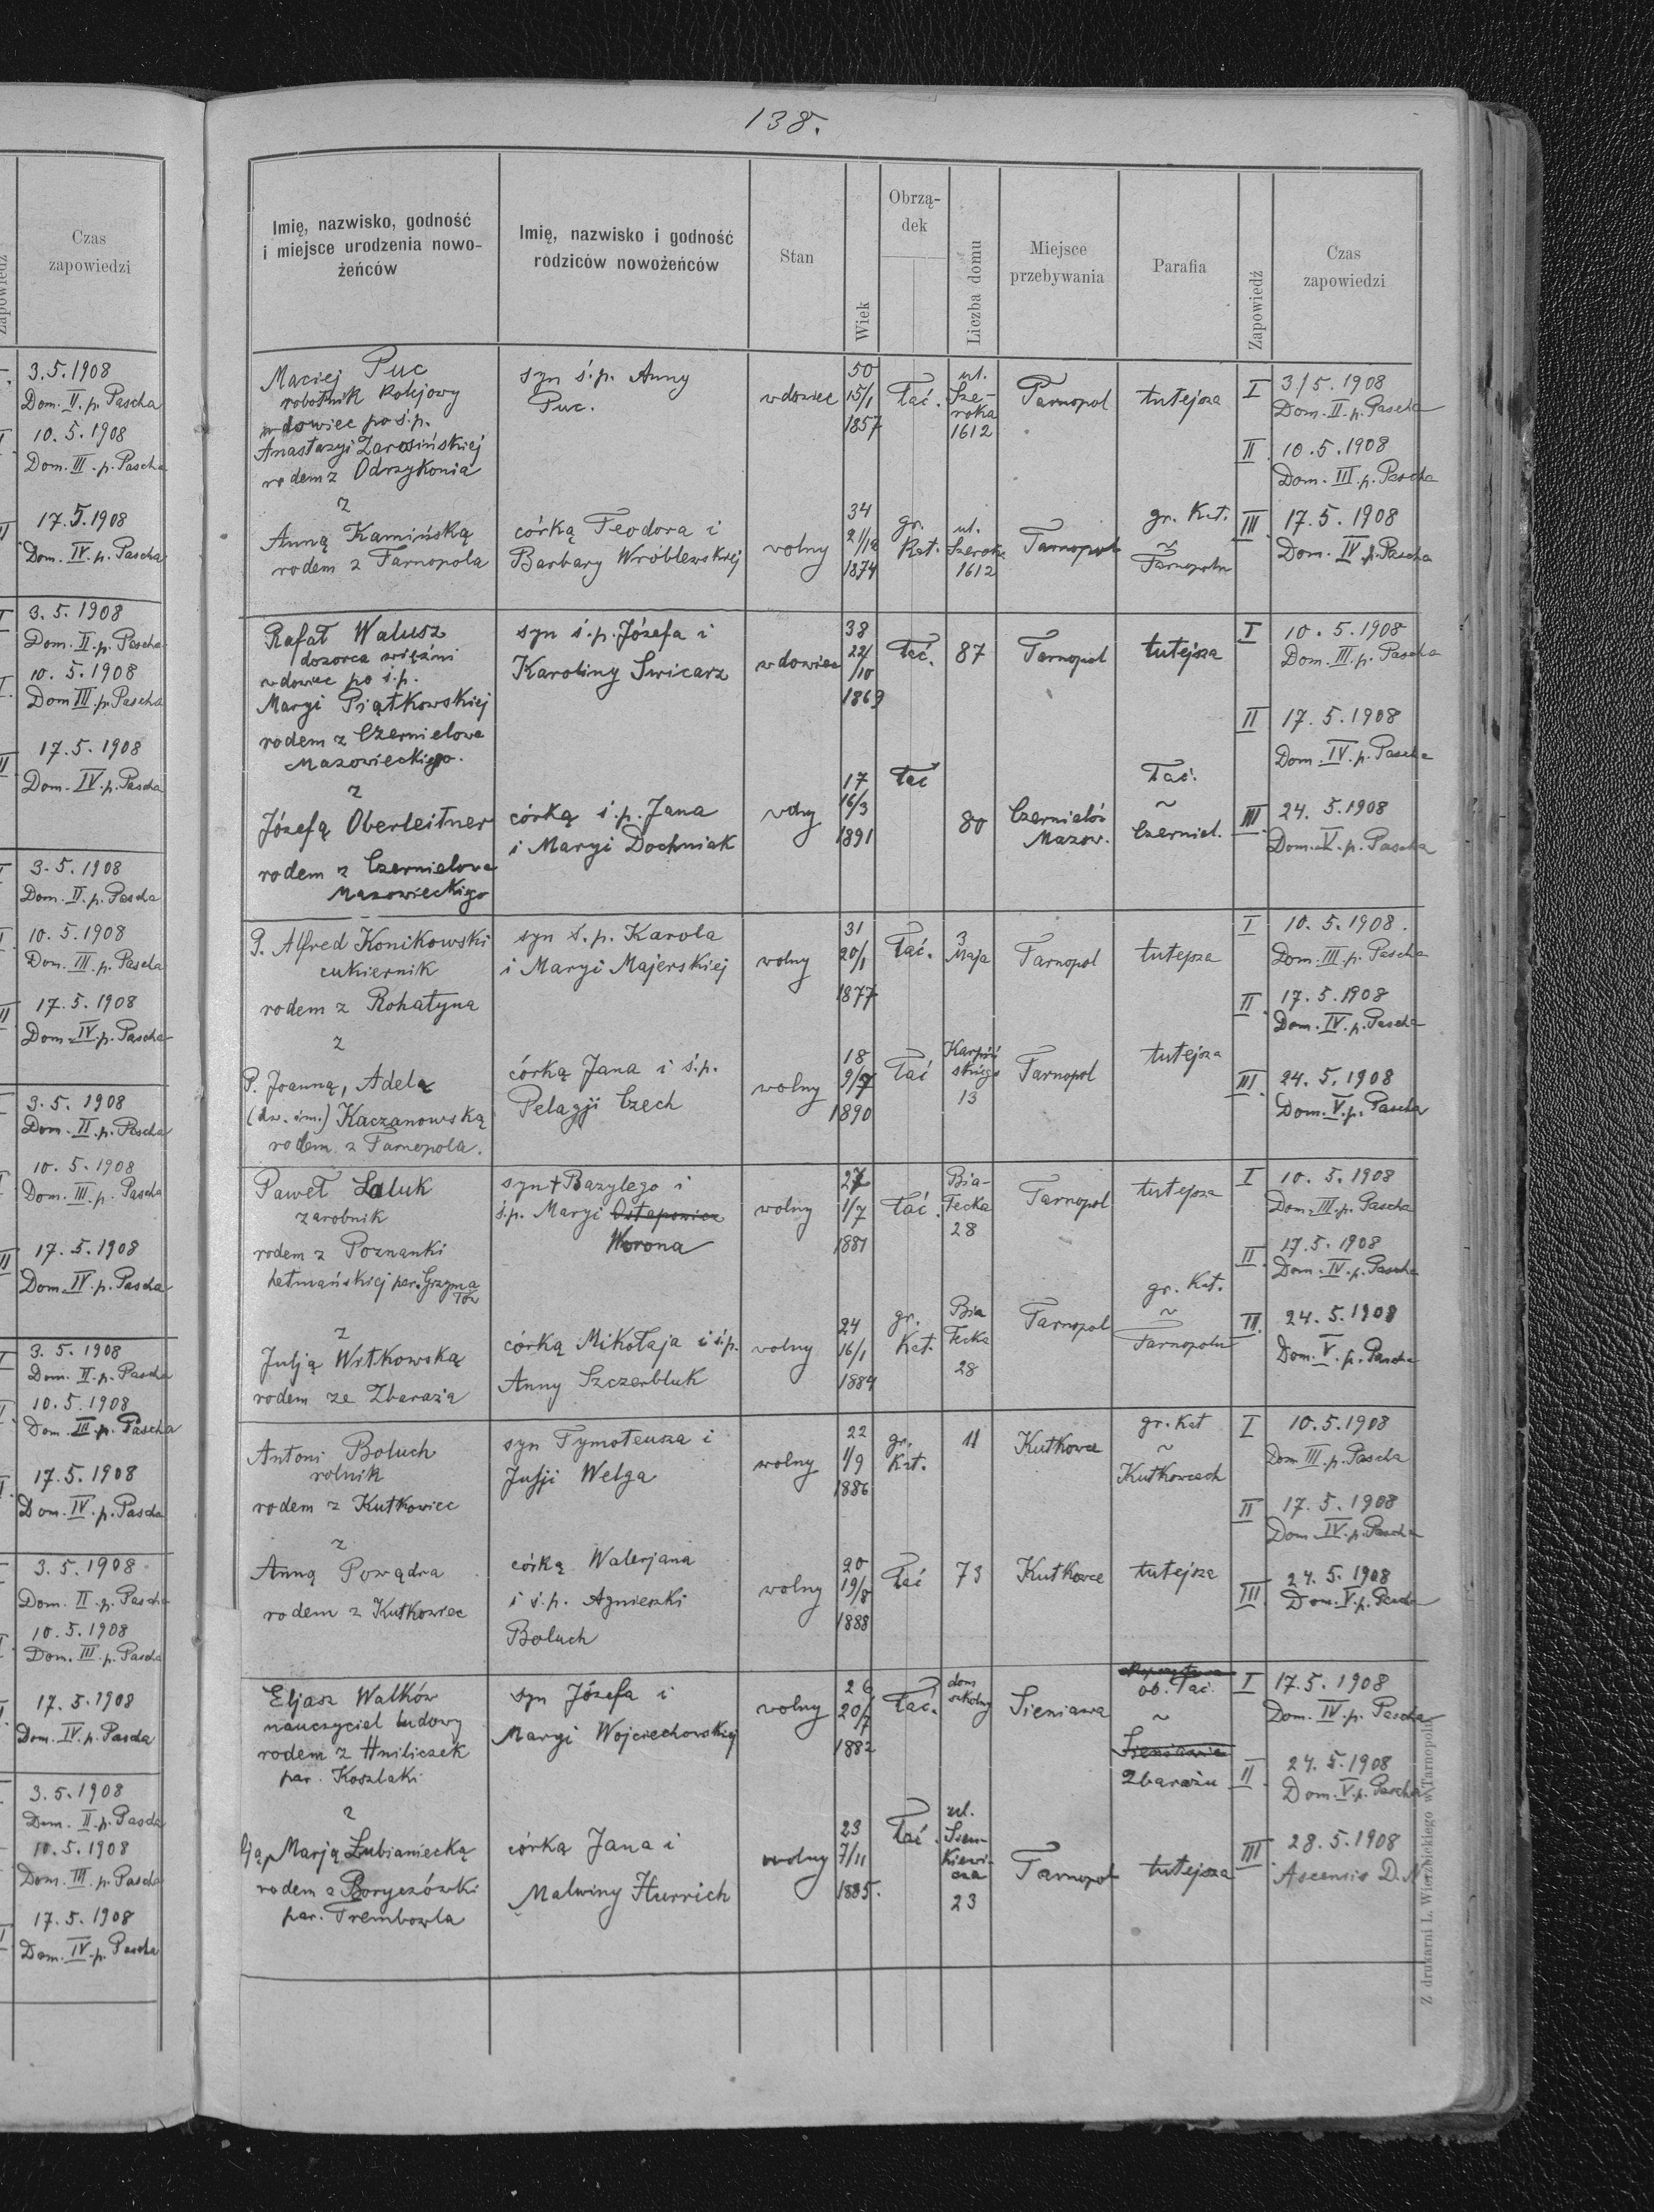 Czas
zapowiedzi
3.5.1908
Dom. II. p. Pascha
10.5.1908
Dom. III. p. Pascha
17.5.1908
Dom. IV. p. Pascha
3.5.1908
Dom. II. p. Pascha
10.5.1908
Dom III. p. Pascha
17.5.1908
Dom. IV. p. Pascha
3.5.1908
Dom. II. p. Pascha
10.5.1908
Dom. III. p. Pascha
17.5.1908
Dom. IV. p. Pascha
3.5.1908
Dom. II. p. Pascha
10.5.1908
Dom. III. p. Pascha
17.5.1908
Dom. IV. p. Pascha
3.5.1908
Dom. II. p. Pascha
10.5.1908
Dom. III. p. Pascha
17.5.1908
Dom. IV. p. Pascha
3.5.1908
Dom. II. p. Pascha
10.5.1908
Dom. III. p. Pascha
17.5.1908
Dom. IV. p. Pascha
3.5.1908
Dom. II. p. Pascha
10.5.1908
Dom. III. p. Pascha
17.5.1908
Dom. IV. p. Pascha
138.
Imię, nazwisko, godność
i miejsce urodzenia nowo-
żeńców
Imię, nazwisko i godność
rodziców nowożeńców
Stan
Wiek
Obrzą-
dek
Liczba domu
Miejsce
przebywania
Parafia
Zapowiedź
Czas
zapowiedzi
Maciej Puc
robotnik kolejowy
wdowiec po ś.p.
Anastazyi Zarosińskiej
rodem z Odrzykonia
syn ś.p. Anny
Puc.
wdowiec
50
15/1
1857
łać.
ul.
Sze-
roka
1612
Tarnopol
tutejsza
I 3/5.1908
Dom. II. p. Pascha
II. 10.5.1908
Dom. III. p. Pascha
z
Anną Kamińską
rodem z Tarnopola
córką Teodora i
Barbary Wróblewskiej
wolny
34
21/12
1874
gr.
Kat.
ul.
Szeroka
1612
Tarnopol
gr. Kat.
~
Tarnopolu
III. 17.5.1908
Dom. IV. p. Pascha
Rafał Walusz
dozorca więźni
wdowiec po ś.p.
Maryi Piątkowskiej
rodem z Czernielowa
Mazowieckiego.
syn ś.p. Józefa i
Karoliny Swicarz
wdowiec
38
22/
/10
1869
łać.
87
Tarnopol
tutejsza
I 10.5.1908
Dom. III. p. Pascha
II 17.5.1908
Dom. IV. p. Pascha
z
Józefą Oberleitner
rodem z Czernielowa
Mazowieckiego
córką ś.p. Jana
i Maryi Dochniak
wolny
17
16/3
1891
łać
80
Czernielów
Mazow.
łać.
~
Czerniel.
III. 24.5.1908
Dom. V. p. Pascha
P. Alfred Konikowski
cukiernik
rodem z Rohatyna
syn ś.p. Karola
i Maryi Majerskiej
wolny
31
20/1
1877
łać.
3
Maja
Tarnopol
tutejsza
I 10.5.1908.
Dom. III. p. Pascha
II. 17.5.1908
Dom. IV. p. Pascha
z
P. Joanną, Adelą
(dw. im.) Kaczanowską
rodem z Tarnopola.
córką Jana i ś.p.
Pelagji Czech
wolny
18
9/7
1890
łać
Karpiń
skiego
13
Tarnopol
tutejsza
III. 24.5.1908
Dom. V. p. Pascha
Paweł Łaluk
zarobnik
rodem z Poznanki
hetmańskiej par. Grzyma
łów
syn + Bazylego i
ś.p. Maryi Ostapowicz
Worona
wolny
27
1/7
1881
łać.
Bia-
łecka
28
Tarnopol
tutejsza
I 10.5.1908
Dom. III. p. Pascha
II. 17.5.1908
Dom. IV. p. Pascha
z
Julją Witkowską
rodem ze Zbaraża
córką Mikołaja i ś.p.
Anny Szczerbluk
wolny
24
16/1
1884
gr.
Kat.
Bia
łecka
28
Tarnopol
gr. Kat.
~
Tarnopolu
III. 24.5.1908
Dom. V. p. Pascha
Antoni Boluch
rolnik
rodem z Kutkowiec
syn Tymoteusza i
Julji Welga
wolny
22
1/9
1886
gr.
Kat.
11
Kutkowce
gr. Kat
~
Kutkowcach
I 10.5.1908
Dom III. p. Pascha
II 17.5.1908
Dom. IV. p. Pascha
z
Anną Powądra
rodem z Kutkowiec
córką Walerjana
i ś.p. Agnieszki
Boluch
wolny
20
19/8
1888
łać
73
Kutkowce
tutejsza
III. 24.5.1908
Dom. V. p. Pascha
Eljasz Walków
nauczyciel ludowy
rodem z Hniliczek
par. Koszlaki
syn Józefa i
Maryi Wojciechowskiej
wolny
26
20/7
1882
łać.
dom
szkolny
Sieniawa
ob. łać.
~
Sieniawie
Zbarażu
I 17.5.1908
Dom. IV. p. Pascha
II. 24.5.1908
Dom. V. p. Pascha
z
Marją Łubianiecką
rodem z Boryczówki
par. Trembowla
córką Jana i
Malwiny Hurrich
wolny
23
7/11
1885.
łać.
ul.
Sien-
kiewi-
cza
23
Tarnopol
tutejsza
III. 28.5.1908
Ascensio D. N.
Z drukarni L. Wierzbickiego w Tarnopolu